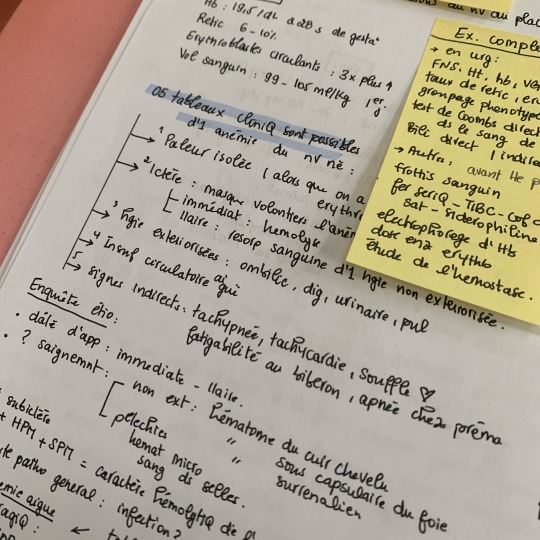 Hb : 19,5 /dL à 28 s de gesta°
Retic 6-10%
Erythroblastes circulants : 3x plus ↑
Vol sanguin : 99 - 105 ml/kg
05 tableaux CliniQ sont possibles
d'1 anémie du nv né :
1 Pâleur isolée ( alors que on a
2 Ictère : masque volontiers l'aném
immédiat : hemolyse
IIaire : resorp sanguine d'1 hgie non exteriorisée.
3 hgie extériorisées : ombilic, dig, urinaire, pul
4 Insuf circulatoire aiguë
5 signes indirects : tachypnée, tachycardie, souffle ♡
fatigabilité au biberon, apnée chez préma
Enquête étio :
• date d'app : immediate - IIaire.
• ? saignemnt :
non ext : hématome du cuir chevelu
" sous capsulaire du foie
" surrenalien
petechies
hemat micro
sang ds selles.
subictère
+ HPM + SPM = caractère hémolytiQ de l'
patho general : infection ?
aigue
Ex. comple
→ en urg :
FNS, Ht, hb,
taux de retic,
groupage phenotyp
test de Coombs direct
Bili ds le sang de
direct / indire
→ Autres, avant
frottis sanguin
fer seriQ - TIBC -
sat - siderophiline
electrophorese d'Hb
dose enz erythro
étude de l'hemostase.